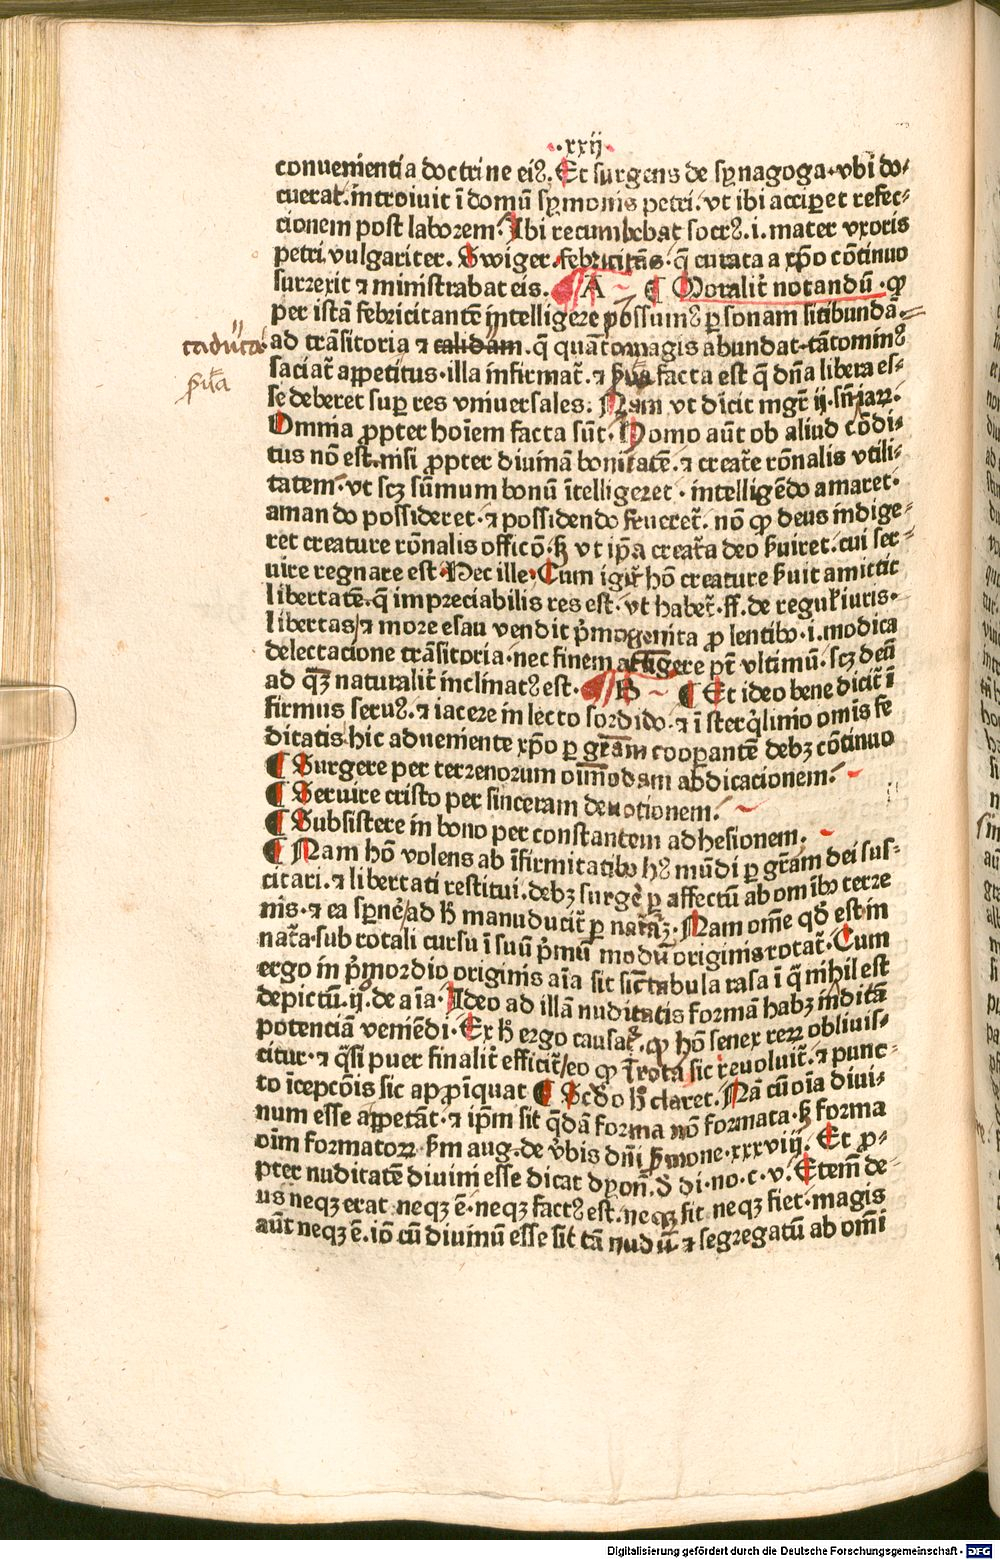 .xxij.
conuenientia doctrine ei⁹. Et surgens de synagoga. vbi do-
cuerat. introiuit ī domū symonis petri. vt ibi acciperet refec-
cionem post laborem. Ibi recumbebat socr⁹. i. mater vxoris
petri. vulgariter. Swiger. febricitās. q̄ curata a xp̄o cōtinuo
surrexit ⁊ ministrabat eis. A ¶ Moralit̄ notandū. ꝙ
per istā febricitantē intelligere possum⁹ ꝑsonam sitibundā
caducā ad trāsitoria ⁊ calidam. q̄ quātomagis abundat. tātomin⁹
ꝑuula saciat̄ appetitus. illa infirmat̄. ⁊ facta est q̄ dn̄a libera es-
se deberet suꝑ res vniuersales. Nam vt dīcit mgr̄ ij. sn̄iaꝝ.
Omnia ꝓpter hoīem facta sūt. Homo aūt ob aliud cōdi-
tus nō est. nisi ꝓpter diuinā bonitatē. ⁊ creat̄e rōnalis vtili-
tatem. vt scꝫ sūmum bonū ītelligeret. intelligēdo amaret.
amando possideret. ⁊ possidendo frueret̄. nō ꝙ deus indige-
ret creature rōnalis officō. ꝭ vt ip̄a creat̄a deo ẜuiret. cui ser-
uire regnare est. Hec ille. Cum igit̄ hō creature ẜuit amittit
libertatē. q̄ impreciabilis res est. vt habet̄. ff. de regul̄ iuris.
libertas ⁊ more esau vendit p̄mogenita ꝓ lentibꝰ. i. modica
delectacione trāsitoria. nec finem attigere pt̄ vltimū. scꝫ deū
ad quē naturalit̄ inclinat⁹ est. B ¶ Et ideo bene dicit̄ ī
firmus seru⁹. ⁊ iacere in lecto sordido. ⁊ ī sterq̇linio om̄is fe
ditatis hic adueniente xp̄o ꝑ gr̄am cooꝑantē debꝫ cōtinuo
¶ Surgere per terrenorum oīmodam abdicacionem.
¶ Seruire cristo per sinceram deuotionem.
¶ Subsistere in bono per constantem adhesionem.
¶ Nam hō volens ab īfirmitatibꝰ h⁹ mūdi ꝑ gr̄am dei sus-
citari. ⁊ libertati restitui. debꝫ surge͛ ꝑ affectū ab om̄ibꝰ terre
nis. ⁊ ea sꝑne͛ ad ꝙ manuducit̄ ꝑ nat̄aꝫ. Nam om̄e qd̄ est in
nat̄a. sub rotali cursu ī suū p̄mū modū originis rotat̄. Cum
ergo in p̄mordio originis aīa sit sic̄ tabula rasa ī q̄ nihil est
depictū. ij. de aīa. Ideo ad illā nuditatis formā habꝫ inditā
potenciā veniēdi. Ex h̄ ergo causat̄. ꝙ hō senex reꝝ obliuis-
citur. ⁊ q̄si puer finalit̄ efficit̄ eo ꝙ ī rota sic reuoluit̄. ⁊ punc-
to īcepcōis sic apꝓpīquat ¶ Scd̄o h̄ claret. Nā cū oīa diui-
num esse appetāt. ⁊ ip̄m sit q̄dā forma nō formata. ẜ forma
oīm formatoꝝ ẜm aug. de v̄bis dn̄i ẜmone. xxxviij. Et ꝓ-
pter nuditatē diuini esse dicat dyon̄. d̄ di. no. c. v. Etem̄ de-
us neqꝫ erat. neqꝫ ē. neqꝫ fact⁹ est. neqꝫ fit neqꝫ fiet. magis
aūt neqꝫ ē. iō cū diuinū esse sit tā nudū ⁊ segregatū ab omī
Digitalisierung gefördert durch die Deutsche Forschungsgemeinschaft - DFG